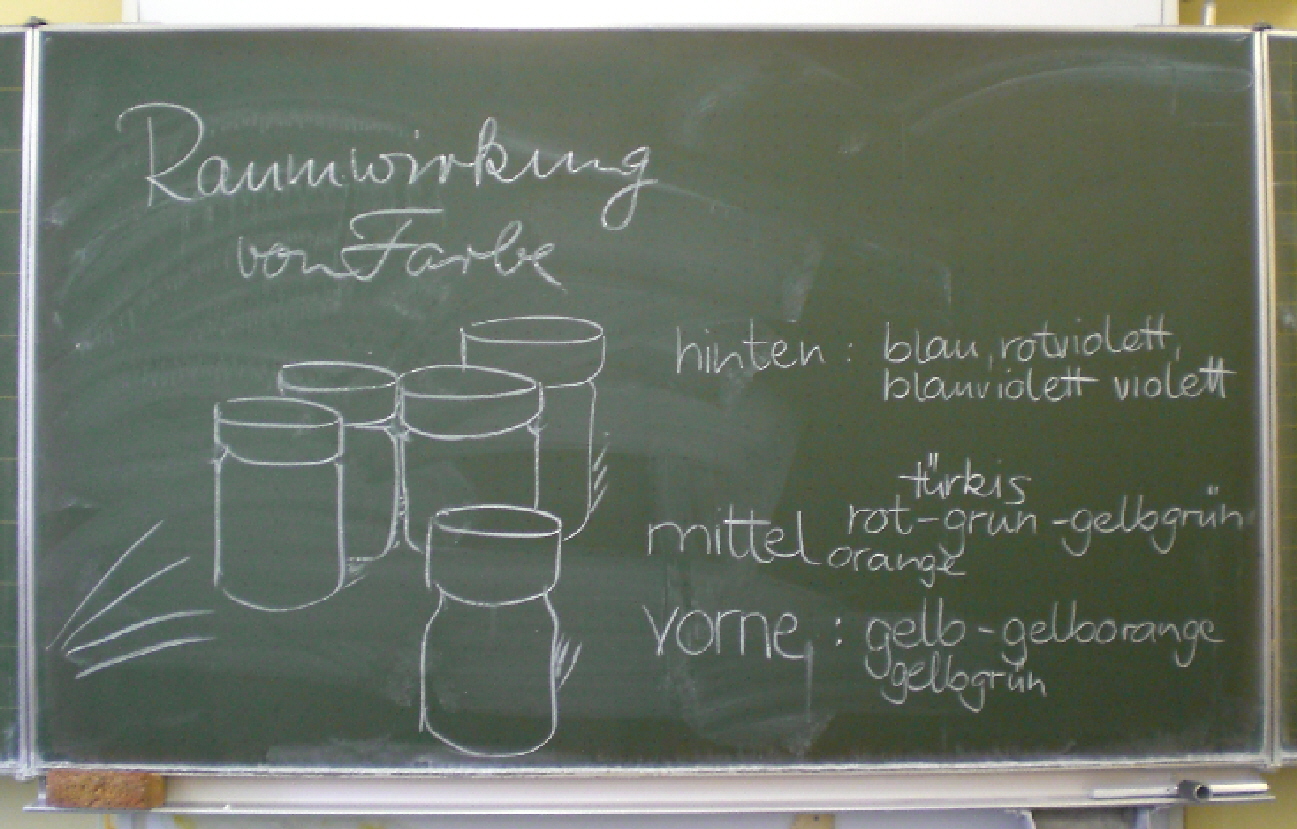 Raumwirkung
von Farbe
hinten : blau, rotviolett,
blauviolett violett
türkis
mittel rot-grün -gelbgrün
orange
vorne : gelb - gelborange
gelbgrün